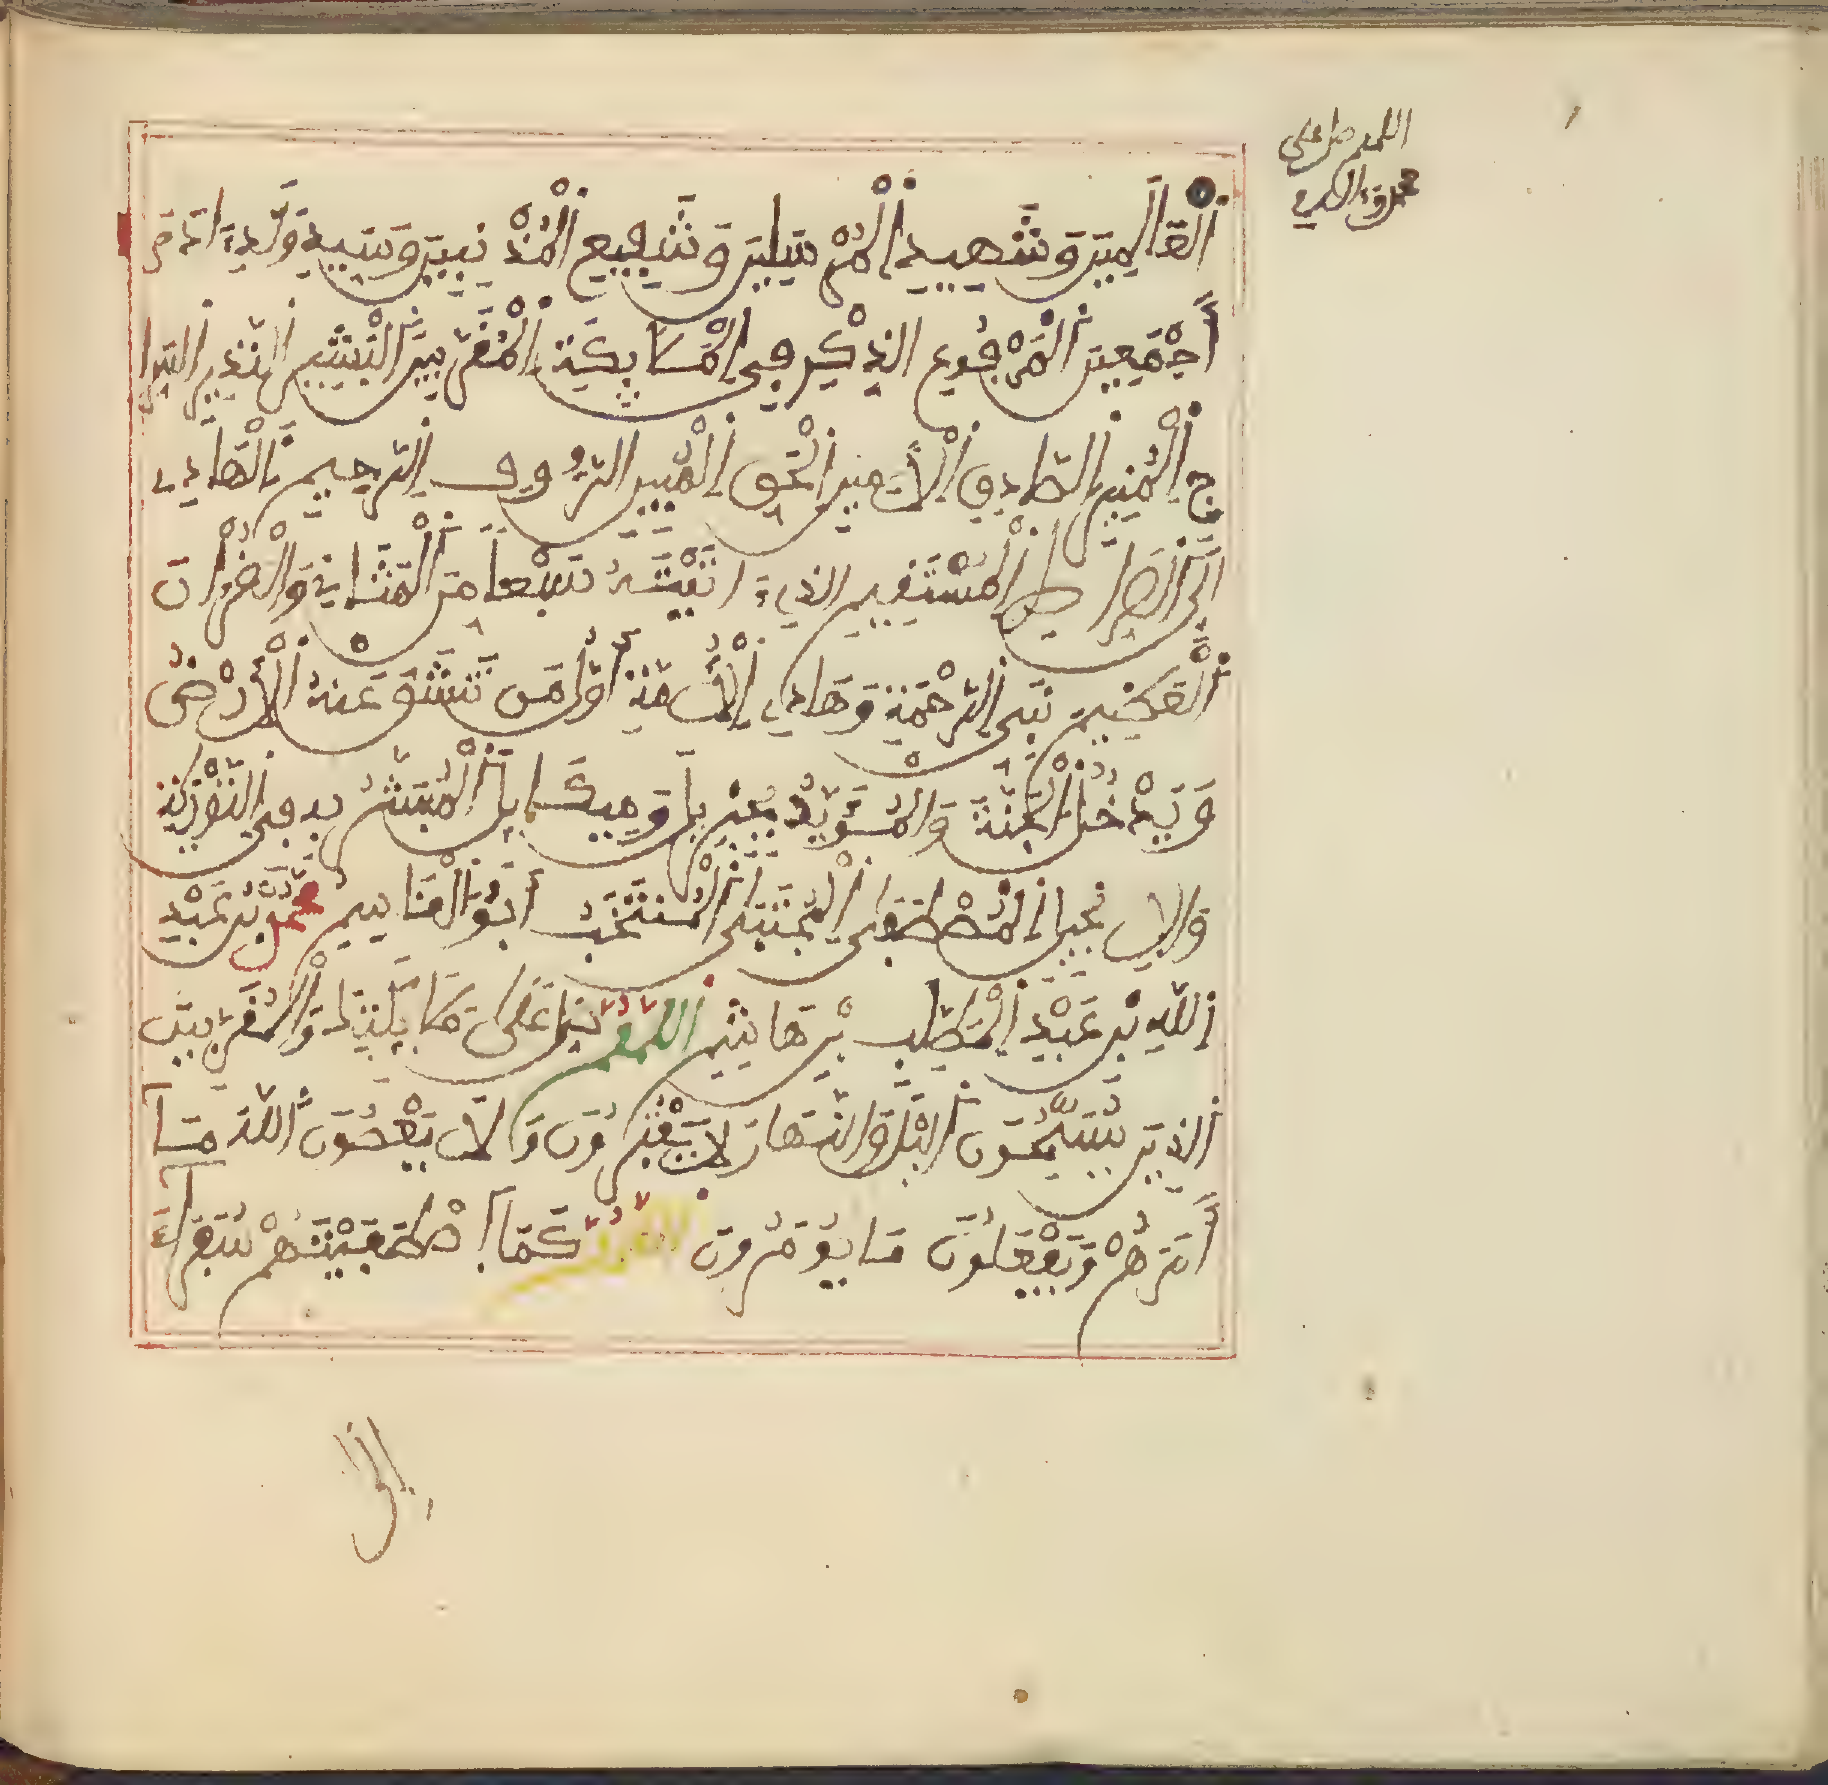 اللهم صل على
محمد وءاله
الْعَالَمِينَ وَشَهِيدِ الْمُرْسَلِينَ وَشَفِيعِ الْمُذْنِبِينَ وَسَيِّدِ وَلَدِ ءَادَمَ
أَجْمَعِينَ الْمَرْفُوعِ الذِّكْرِ فِي الْمَلَائِكَةِ الْمُقَرَّبِينَ الْبَشِيرِ النَّذِيرِ السِّرَا
جِ الْمُنِيرِ الصَّادِقِ الْأَمِينِ الْحَقِّ الْمُبِينِ الرَّءُوفِ الرَّحِيمِ الْهَادِي
إِلَى الصِّرَاطِ الْمُسْتَقِيمِ الَّذِي ءَاتَيْتَهُ سَبْعًا مِنَ الْمَثَانِي وَالْقُرْءَانَ
الْعَظِيمَ نَبِيِّ الرَّحْمَةِ وَهَادِي الْأُمَّةِ أَوَّلِ مَنْ تَنْشَقُّ عَنْهُ الْأَرْضُ
وَيَدْخُلُ الْجَنَّةَ وَالْمُؤَيَّدُ بِجِبْرِيلَ وَمِيكَائِيلَ الْمُبَشَّرُ بِهِ فِي التَّوْرِيَةِ
وَالْإِنْجِيلِ الْمُصْطَفَى الْمُجْتَبَى الْمُنْتَخَبُ أَبُو الْقَاسِمِ مُحَمَّدُ بْنُ عَبْدِ
اللَّهِ بْنِ عَبْدِ الْمُطَّلِبِ بْنِ هَاشِمٍ اللَّهُمَّ صَلِّ عَلَى مَلَائِكَتِكَ وَالْمُقَرَّبِينَ
الَّذِينَ يُسَبِّحُونَ الَّيْلَ وَالنَّهَارَ لَا يَفْتُرُونَ وَلَا يَعْصُونَ اللَّهَ مَا
أَمَرَهُمْ وَيَفْعَلُونَ مَا يُؤْمَرُونَ اللَّهُمَّ كَمَا اصْطَفَيْتَهُمْ سُفَرَاءَ
إلى